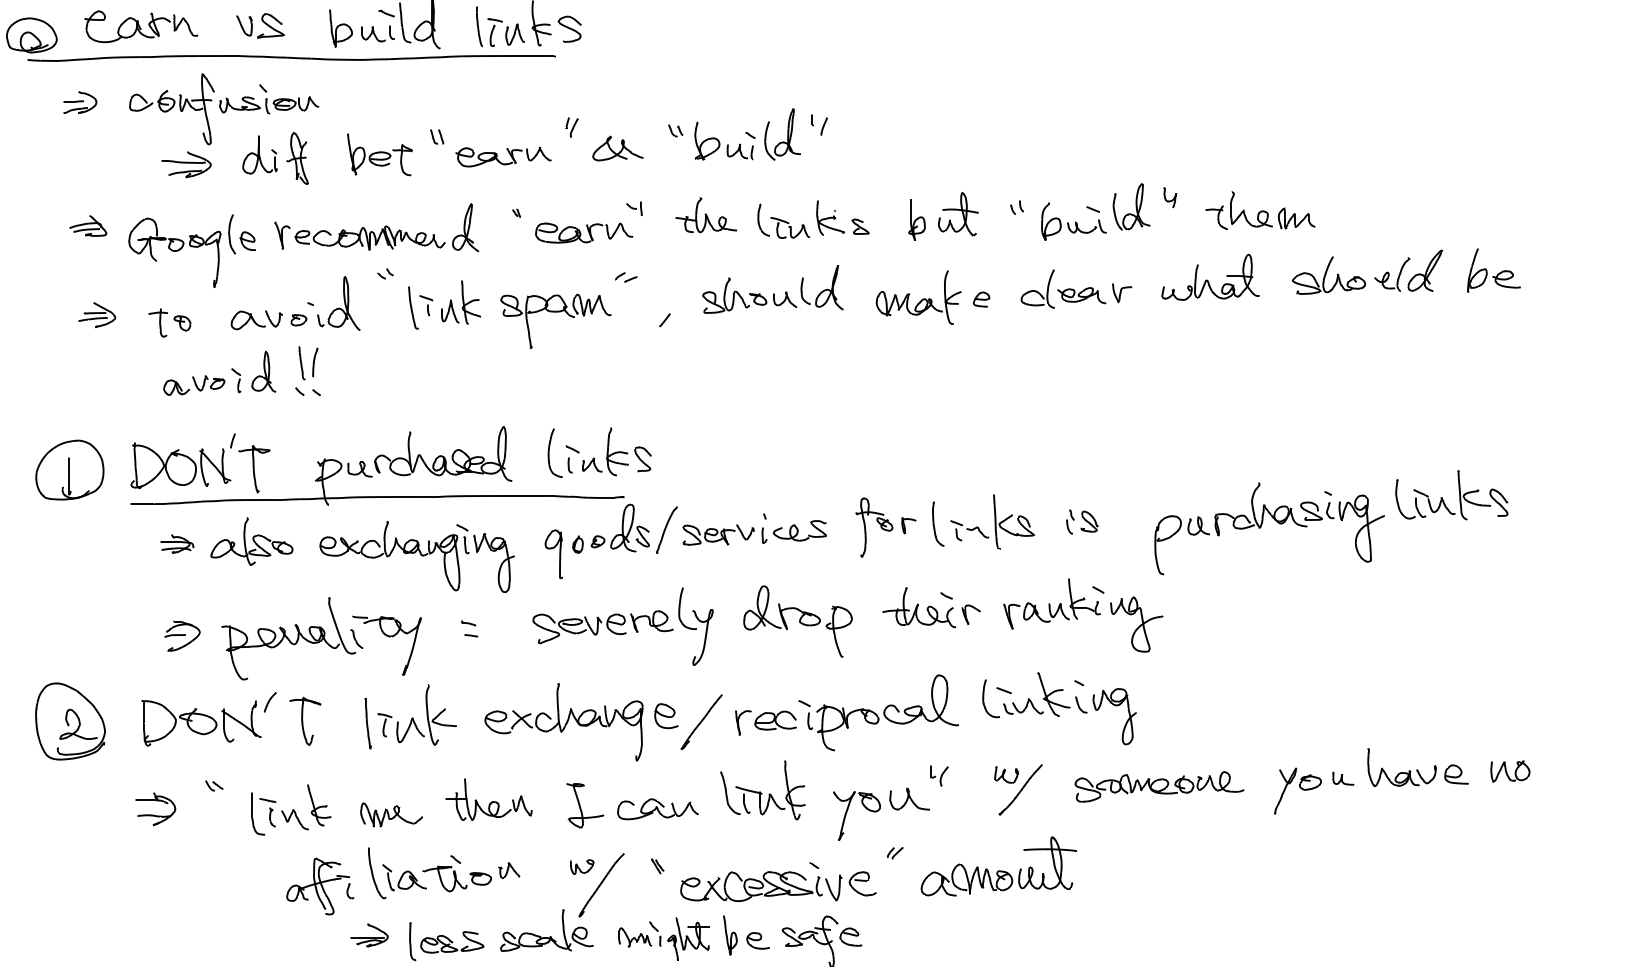 @ earn vs build links
⇒ confusion
⇒ diff bet "earn" & "build"
⇒ Google recommend "earn" the links but "build" them
⇒ to avoid "link spam", should make clear what should be
avoid!!
① DON'T purchased links
⇒ also exchanging goods/services for links is purchasing links
⇒ penality = severely drop their ranking
② DON'T link exchange/reciprocal linking
⇒ "link me then I can link you" w/ someone you have no
affiliation w/ "excessive" amount
⇒ less scale might be safe